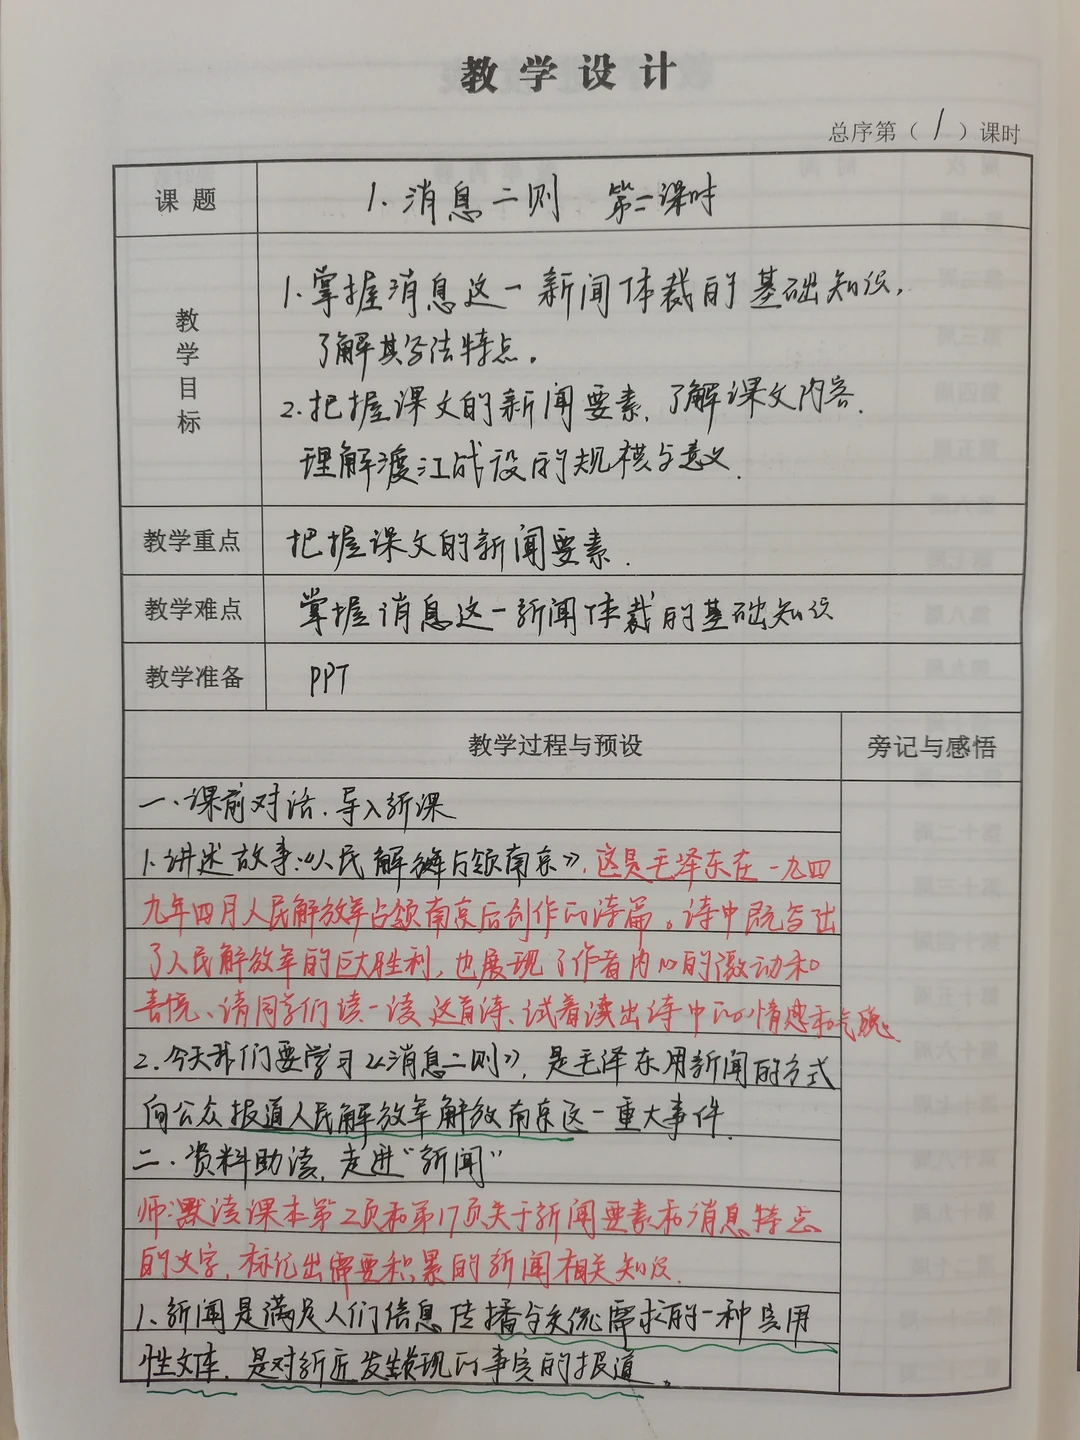 教学设计
总序第（1）课时
课题 1.消息二则 第一课时
教学目标
1.掌握消息这一新闻体裁的基础知识，
了解其写法特点。
2.把握课文的新闻要素，了解课文内容，
理解渡江战役的规模与意义.
教学重点 把握课文的新闻要素.
教学难点 掌握消息这一新闻体裁的基础知识
教学准备 PPT
教学过程与预设 旁记与感悟
一、课前对话，导入新课
1.讲述故事：《人民解放军占领南京》，这是毛泽东在一九四
九年四月人民解放军占领南京后创作的诗篇。诗中既写出
了人民解放军的巨大胜利，也展现了作者内心的激动和
喜悦、请同学们读一读这首诗、试着读出诗中的情感和气魄.
2.今天我们要学习《消息二则》，是毛泽东用新闻的方式
向公众报道人民解放军解放南京这一重大事件.
二、资料助读，走进“新闻”
师：默读课本第2页和第17页关于新闻要素和消息特点
的文字，标记出需要积累的新闻相关知识.
1、新闻是满足人们信息传播与交流需求的一种实用
性文体，是对新近发生发现的事实的报道。